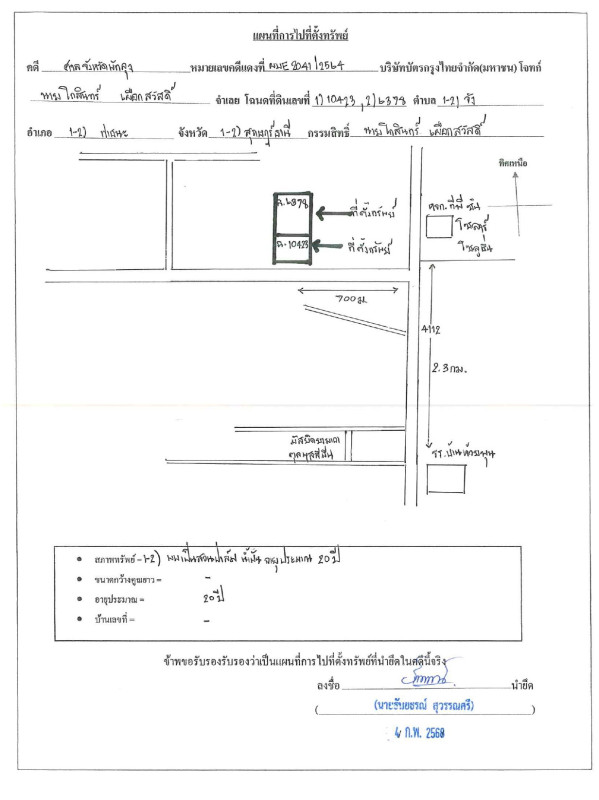 แผนที่การไปที่ตั้งทรัพย์
คดี ศาลจังหวัด หมายเลขคดีแดงที่ ผบE2041/2564 บริษัทบัตรกรุงไทยจำกัด(มหาชน) โจทก์
นายโกสินทร์ เผือกสวัสดิ์ จำเลย โฉนดที่ดินเลขที่ 1) 10423, 2) 6378 ตำบล 1-2) วัง
อำเภอ 1-2) ท่าชนะ จังหวัด 1-2) สุราษฎร์ธานี กรรมสิทธิ์ นายโกสินทร์ เผือกสวัสดิ์
ทิศเหนือ
ฉ.6378
ที่ตั้งทรัพย์
หจก. ทีพี ซัน
โซลาร์
โซลูชั่น
ฉ.10423
ที่ตั้งทรัพย์
700 ม.
4112
2.3 กม.
มัสยิด
รร.บ้านห้วยพุน
สภาพทรัพย์ – 1-2) พบเป็นสวนปาล์มน้ำมัน อายุประมาณ 20 ปี
ขนาดกว้างคูณยาว = -
อายุประมาณ = 20 ปี
บ้านเลขที่ = -
ข้าพขอรับรองรับรองว่าเป็นแผนที่การไปที่ตั้งทรัพย์ที่นำยึดในคดีนี้จริง
ลงชื่อ นำยึด
(นายธันยธรณ์ สุวรรณศรี)
4 ก.พ. 2568